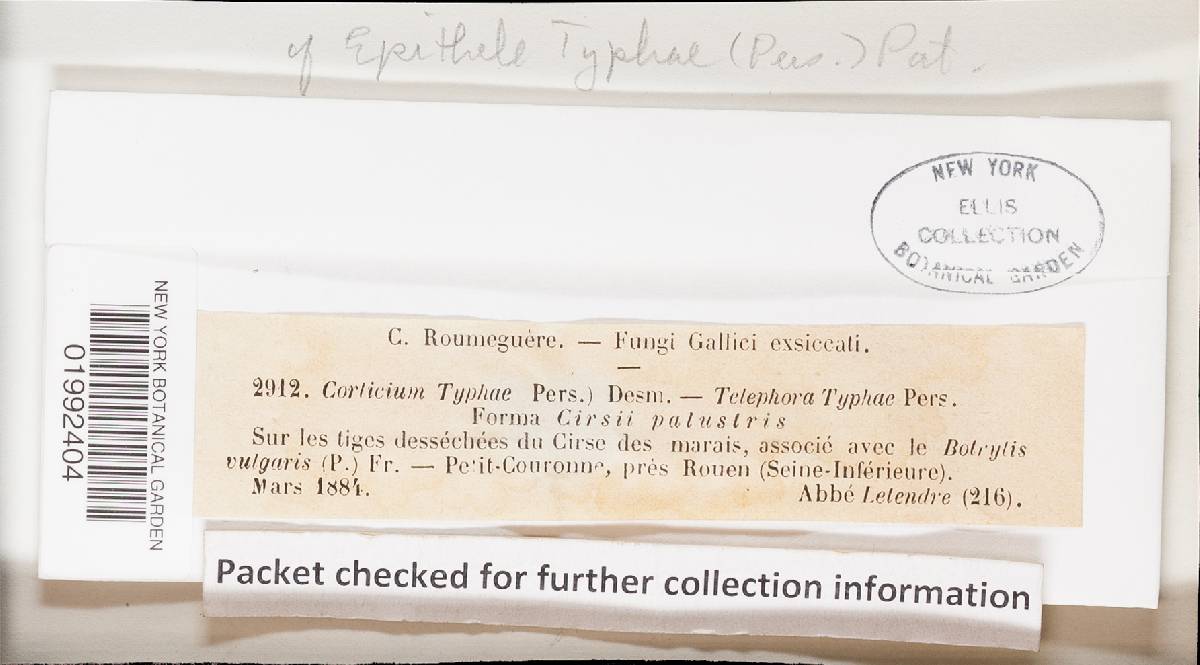 cf Epithele Typhae (Pers.) Pat.
NEW YORK
ELLIS
COLLECTION
BOTANICAL GARDEN
NEW YORK BOTANICAL GARDEN
01992404
C. Roumeguère. — Fungi Gallici exsiccati.
2912. Corticium Typhae Pers.) Desm. — Telephora Typhae Pers.
Forma Cirsii palustris
Sur les tiges desséchées du Cirse des marais, associé avec le Botrytis
vulgaris (P.) Fr. — Petit-Couronne, prés Rouen (Seine-Inférieure).
Mars 1884. Abbé Letendre (216).
Packet checked for further collection information